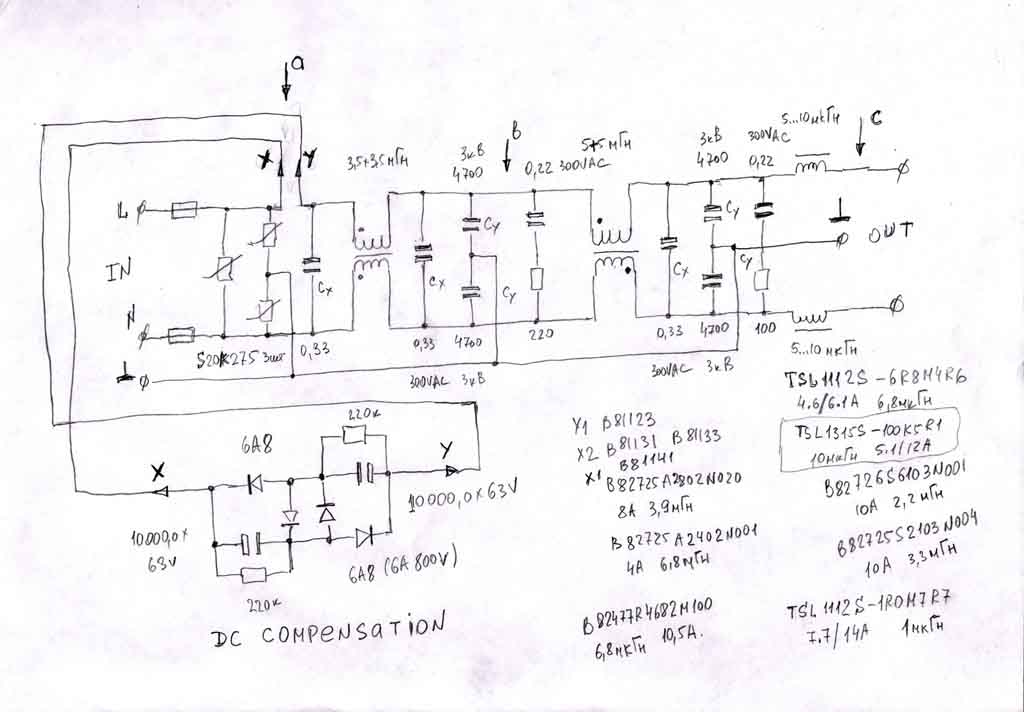 a
X
Y
L
IN
N
3,5+3,5мГн
3кВ
4700
B
0,22 300VAC
5+5мГн
3кВ
4700
300VAC
0,22
5...10мкГн
C
Cx
Cx
Cy
Cy
Cx
Cy
Cy
OUT
S20K275 3шт
0,33
0,33
4700
220
0,33
4700
100
300VAC 3кВ
300VAC 3кВ
5...10мкГн
X
6A8
220к
Y
10000,0x
63V
10.000,0 x 63V
220к
6A8 (6A 800V)
DC COMPENSATION
Y1 B81123
X2 B81131 B81133
X1 B81141
B82725A2802N020
8A 3,9мГн
B82725A2402N001
4A 6,8мГн
B82477R4682M100
6,8мкГн 10,5A.
TSL1112S-6R8M4R6
4.6/6.1A 6,8мкГн
TSL1315S-100K5R1
10мкГн 5.1/12A
B82726S6103N001
10A 2,2мГн
B82725S2103N004
10A 3,3мГн
TSL1112S-1R0M7R7
7.7/14A 1мкГн